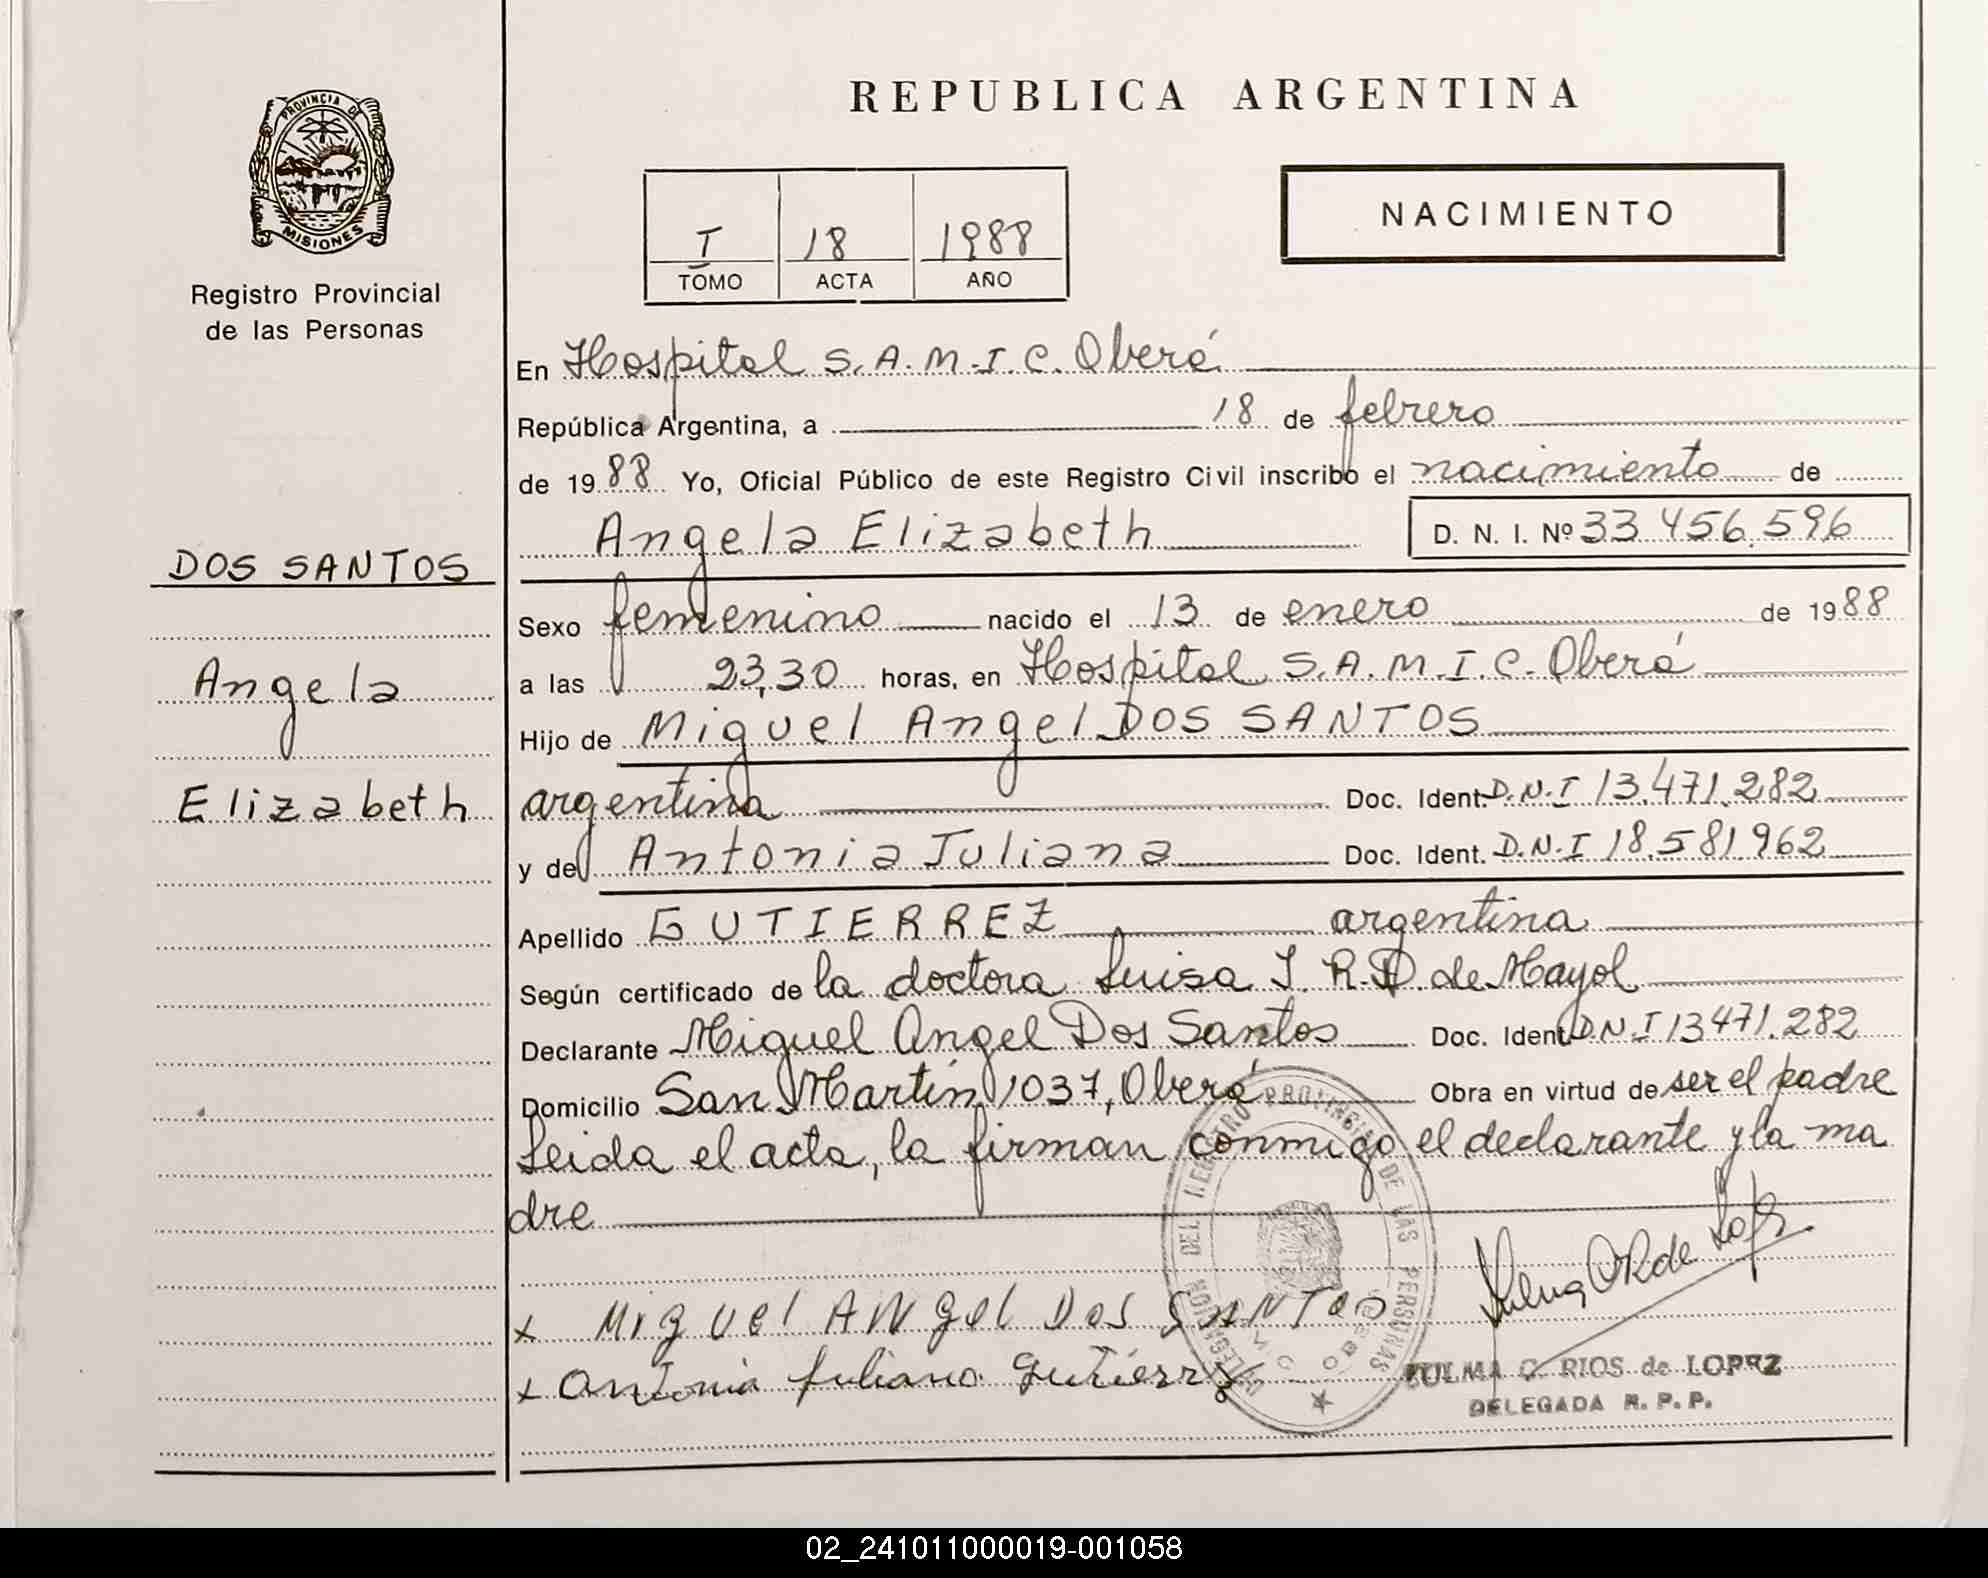 REPUBLICA ARGENTINA
PROVINCIA DE
MISIONES
Registro Provincial
de las Personas
NACIMIENTO
T 18 1988
TOMO ACTA AÑO
En Hospital S.A.M.I.C. Oberá
República Argentina, a 18 de febrero
de 1988 Yo, Oficial Público de este Registro Civil inscribo el nacimiento de
Angela Elizabeth D. N. I. Nº 33.456.596
DOS SANTOS
Angela
Elizabeth
Sexo femenino nacido el 13 de enero de 1988
a las 23,30 horas, en Hospital S.A.M.I.C. Oberá
Hijo de Miguel Angel DOS SANTOS
argentina Doc. Ident. D.N.I 13.471.282
y de Antonia Juliana Doc. Ident. D.N.I 18.581.962
Apellido GUTIERREZ argentina
Según certificado de la doctora Luisa I. R.D. de Mayol
Declarante Miguel Angel Dos Santos Doc. Ident. D.N.I 13471.282
Domicilio San Martín 1037, Oberá Obra en virtud de ser el padre
Leida el acta, la firman conmigo el declarante y la ma
dre
Miguel ANgel Dos SANTOS
Antonia Juliana Gutierrez
DELEGACION DEL REGISTRO PROVINCIAL DE LAS PERSONAS
ZULMA C. RIOS de LOPEZ
DELEGADA R. P. P.
02_241011000019-001058